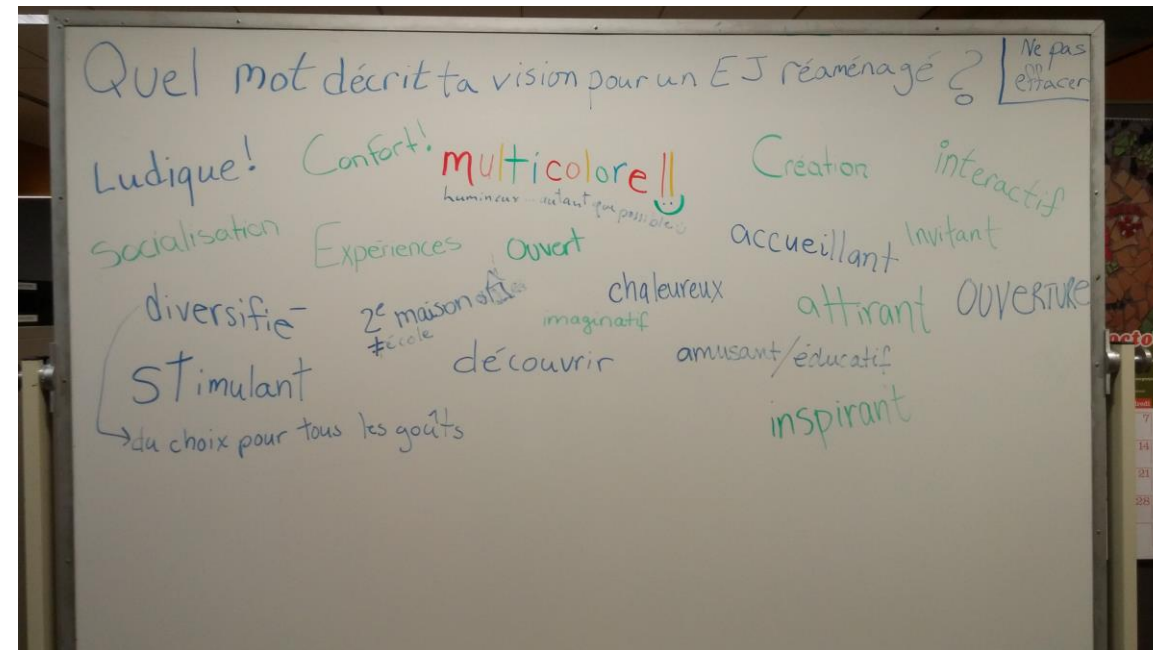 Quel mot décrit ta vision pour un EJ réaménagé ?
Ne pas
effacer
Ludique!
Confort!
multicolore!!
autant que possible
Création
interactif
Socialisation
Expériences
ouvert
accueillant
Invitant
diversifié
2e maison
≠ école
chaleureux
imaginatif
attirant
OUVERTURE
STimulant
découvrir
amusant/éducatif
du choix pour tous les goûts
inspirant